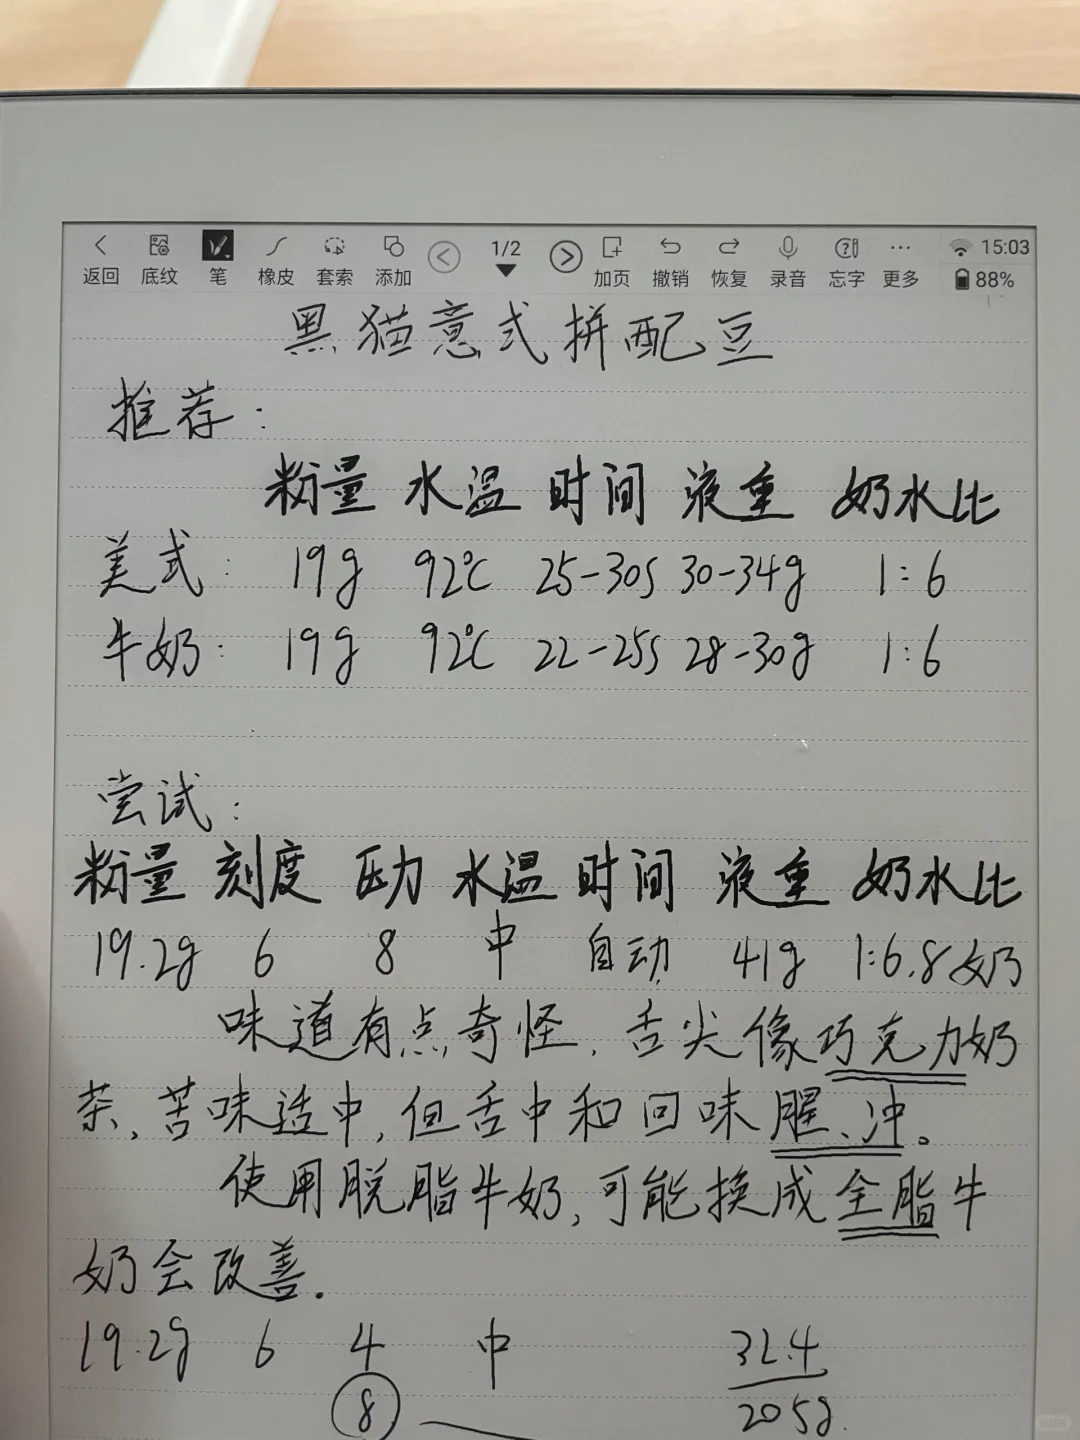 1/2 15:03
返回 底纹 笔 橡皮 套索 添加 加页 撤销 恢复 录音 忘字 更多 88%
黑猫意式拼配豆
推荐:
粉量 水温 时间 液重 奶水比
美式: 19g 92℃ 25-30s 30-34g 1:6
牛奶: 19g 92℃ 22-25s 28-30g 1:6
尝试:
粉量 刻度 压力 水温 时间 液重 奶水比
19.2g 6 8 中 自动 41g 1:6.8奶
味道有点奇怪,舌尖像巧克力奶
茶,苦味适中,但舌中和回味腥、冲。
使用脱脂牛奶,可能换成全脂牛
奶会改善.
19.2g 6 4 中 32.4
8 205g.